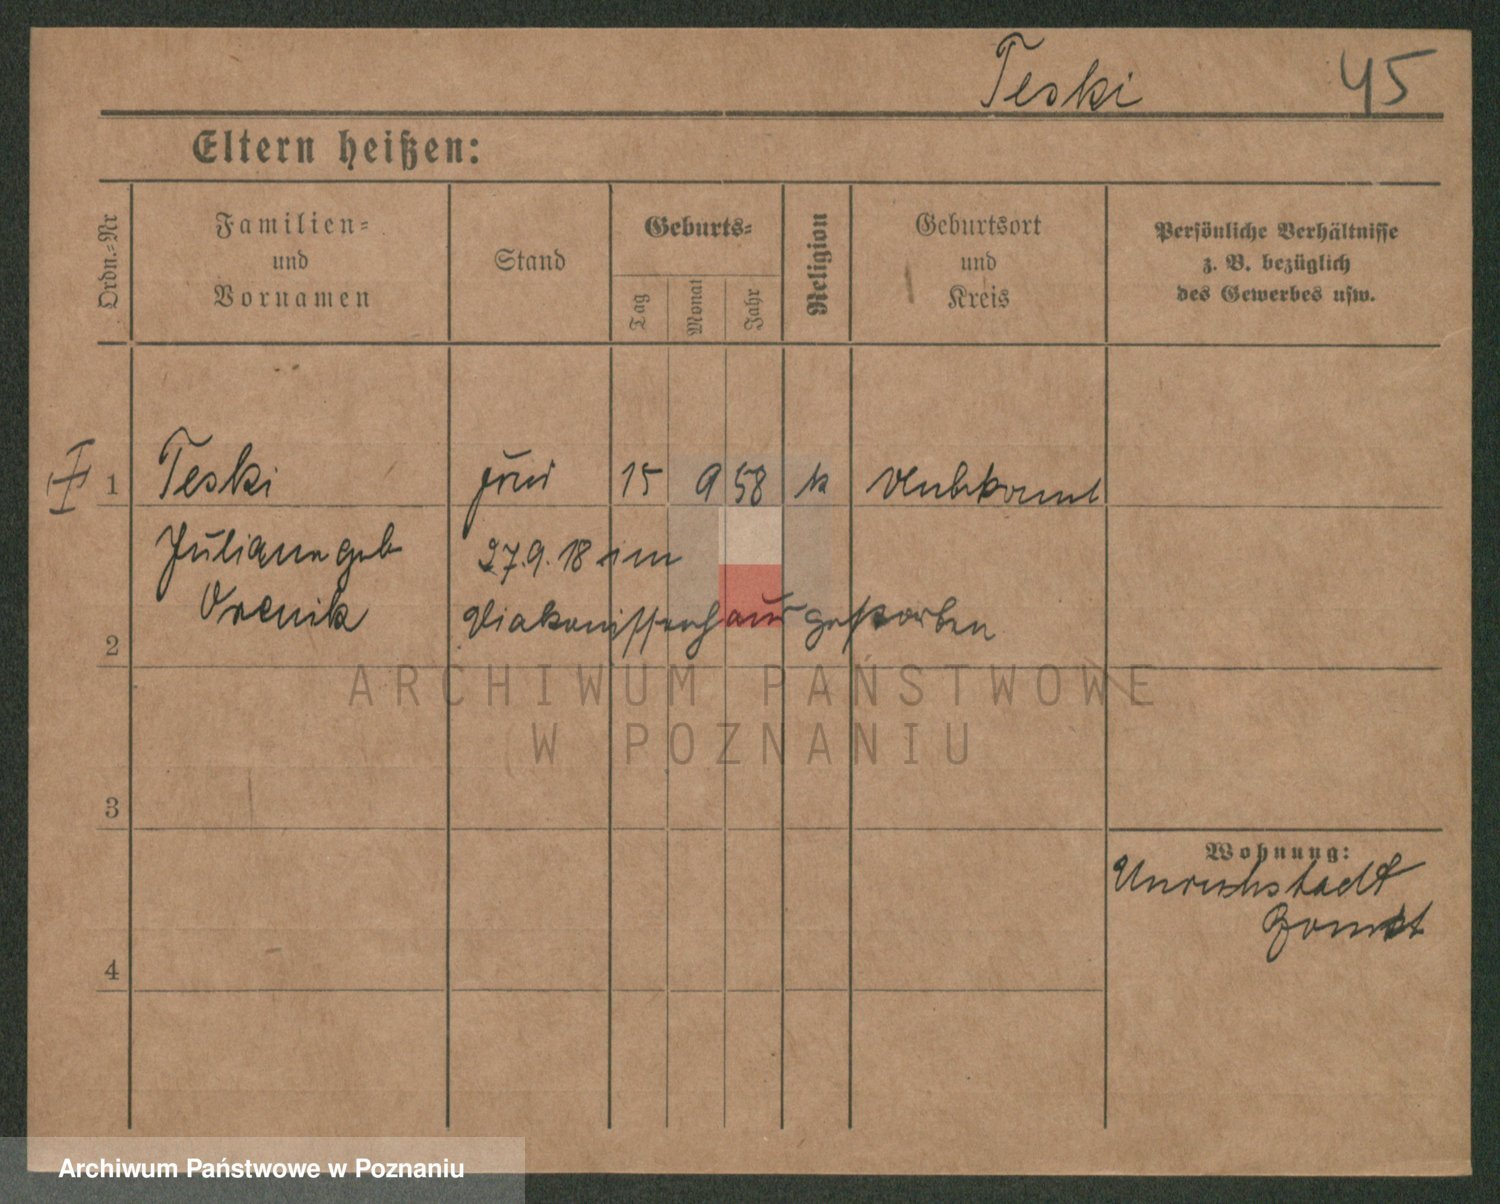 Teski 45
Eltern heißen:
Ordn.-Nr
Familien-
und
Vornamen
Stand
Geburts-
Tag
Monat
Jahr
Religion
Geburtsort
und
Kreis
Persönliche Verhältnisse
z. B. bezüglich
des Gewerbes usw.
1 Teski 15 9 58 k Unbekannt
Juliane geb 27.9.18 im
Diakonissenhaus gestorben
2
ARCHIWUM PAŃSTWOWE
W POZNANIU
3
Wohnung:
Unruhstadt
Bomst
4
Archiwum Państwowe w Poznaniu